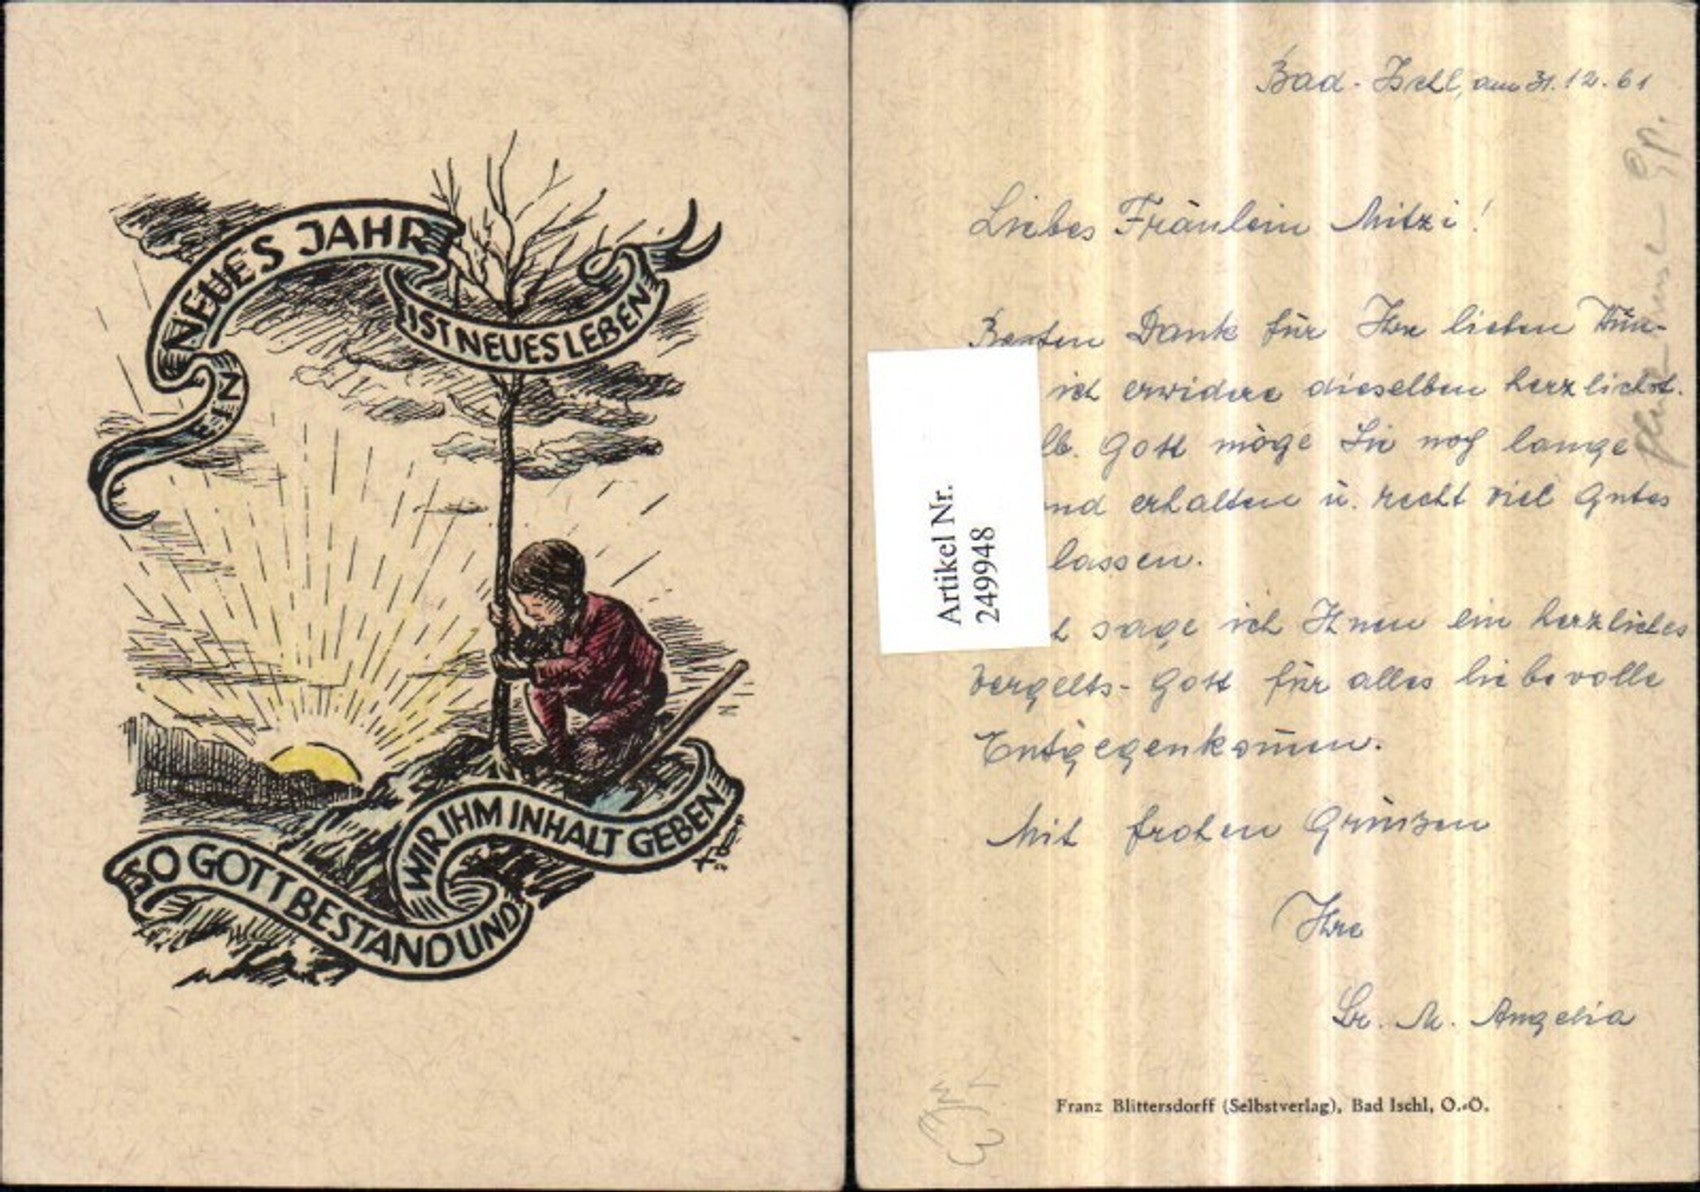 EIN
NEUES JAHR
IST NEUES LEBEN
SO GOTT BESTAND UND
WIR IHM INHALT GEBEN
Bad-Ischl, am 31.12.61
Liebes Fräulein Mitzi!
Besten Dank für Ihre lieben Wün-
ich erwidere dieselben herzlichst.
lb. Gott möge Sie noch lange
nd erhalten u. recht viel Gutes
lassen.
sage ich Ihnen ein herzliches
Vergelts-Gott für alles liebevolle
Entgegenkommen.
Mit frohen Grüßen
Ihre
Sr. M. Angelia
Artikel Nr.
249948
Franz Blittersdorff (Selbstverlag), Bad Ischl, O.-Ö.